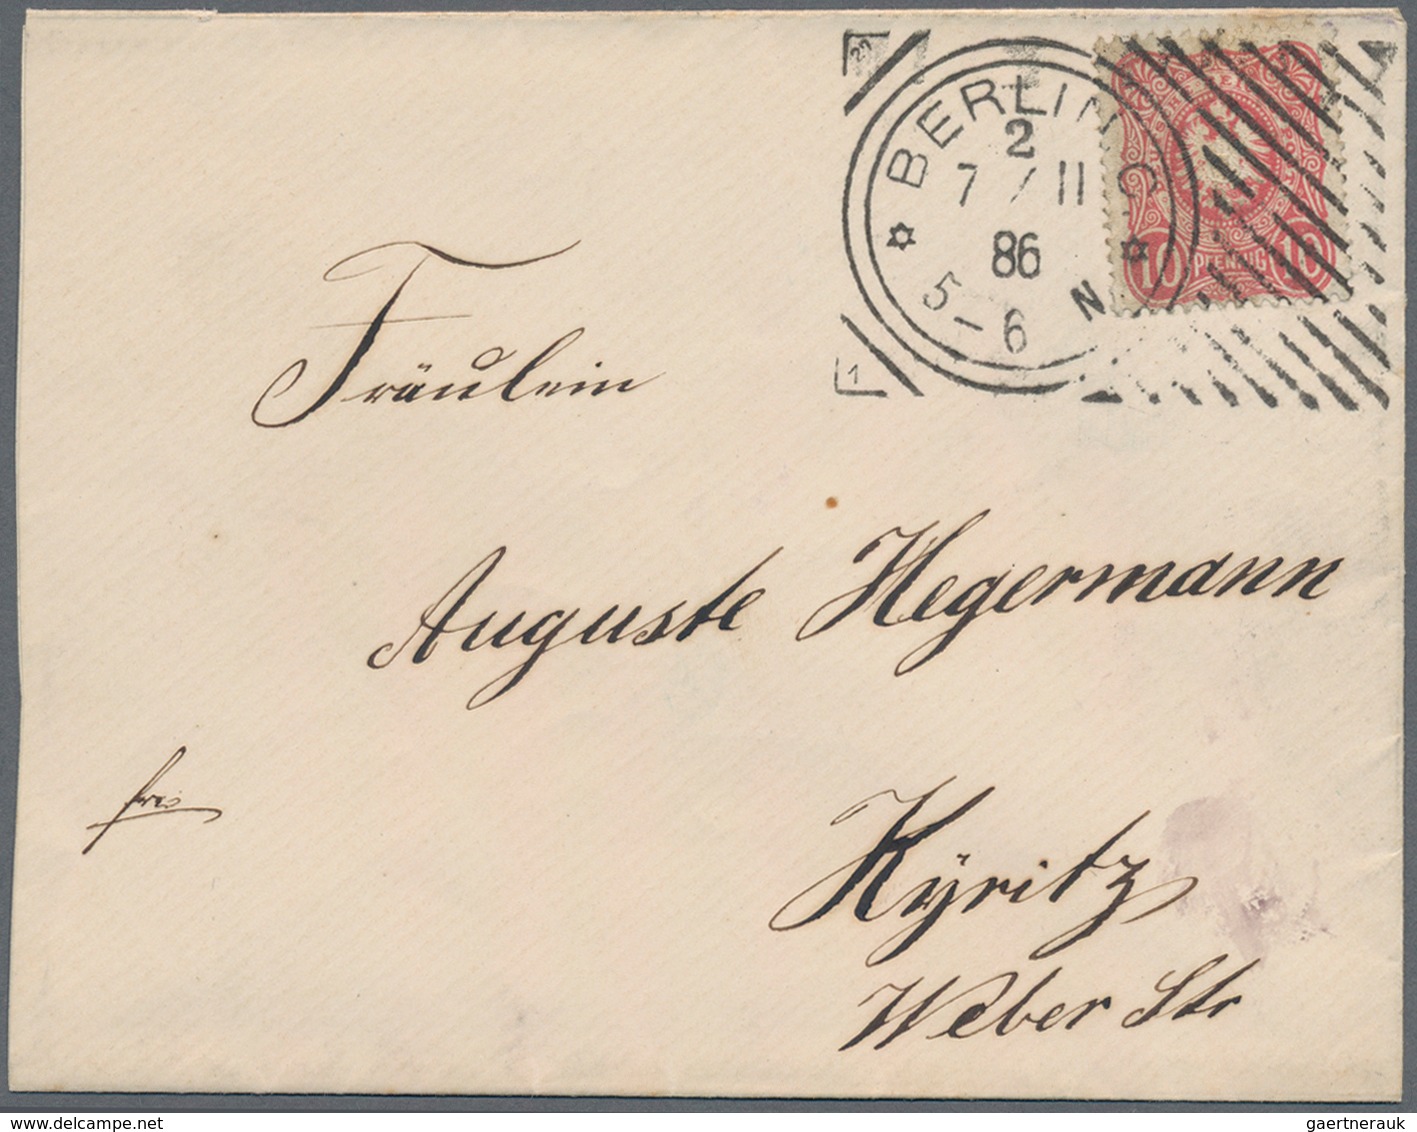 BERLIN C
2
7 / 11
86
5-6 N
27
1
10 PFENNIG 10
Fräulein
Auguste Hegermann
frei
Kÿritz
Weber Str
www.delcampe.net
gaertnerauk